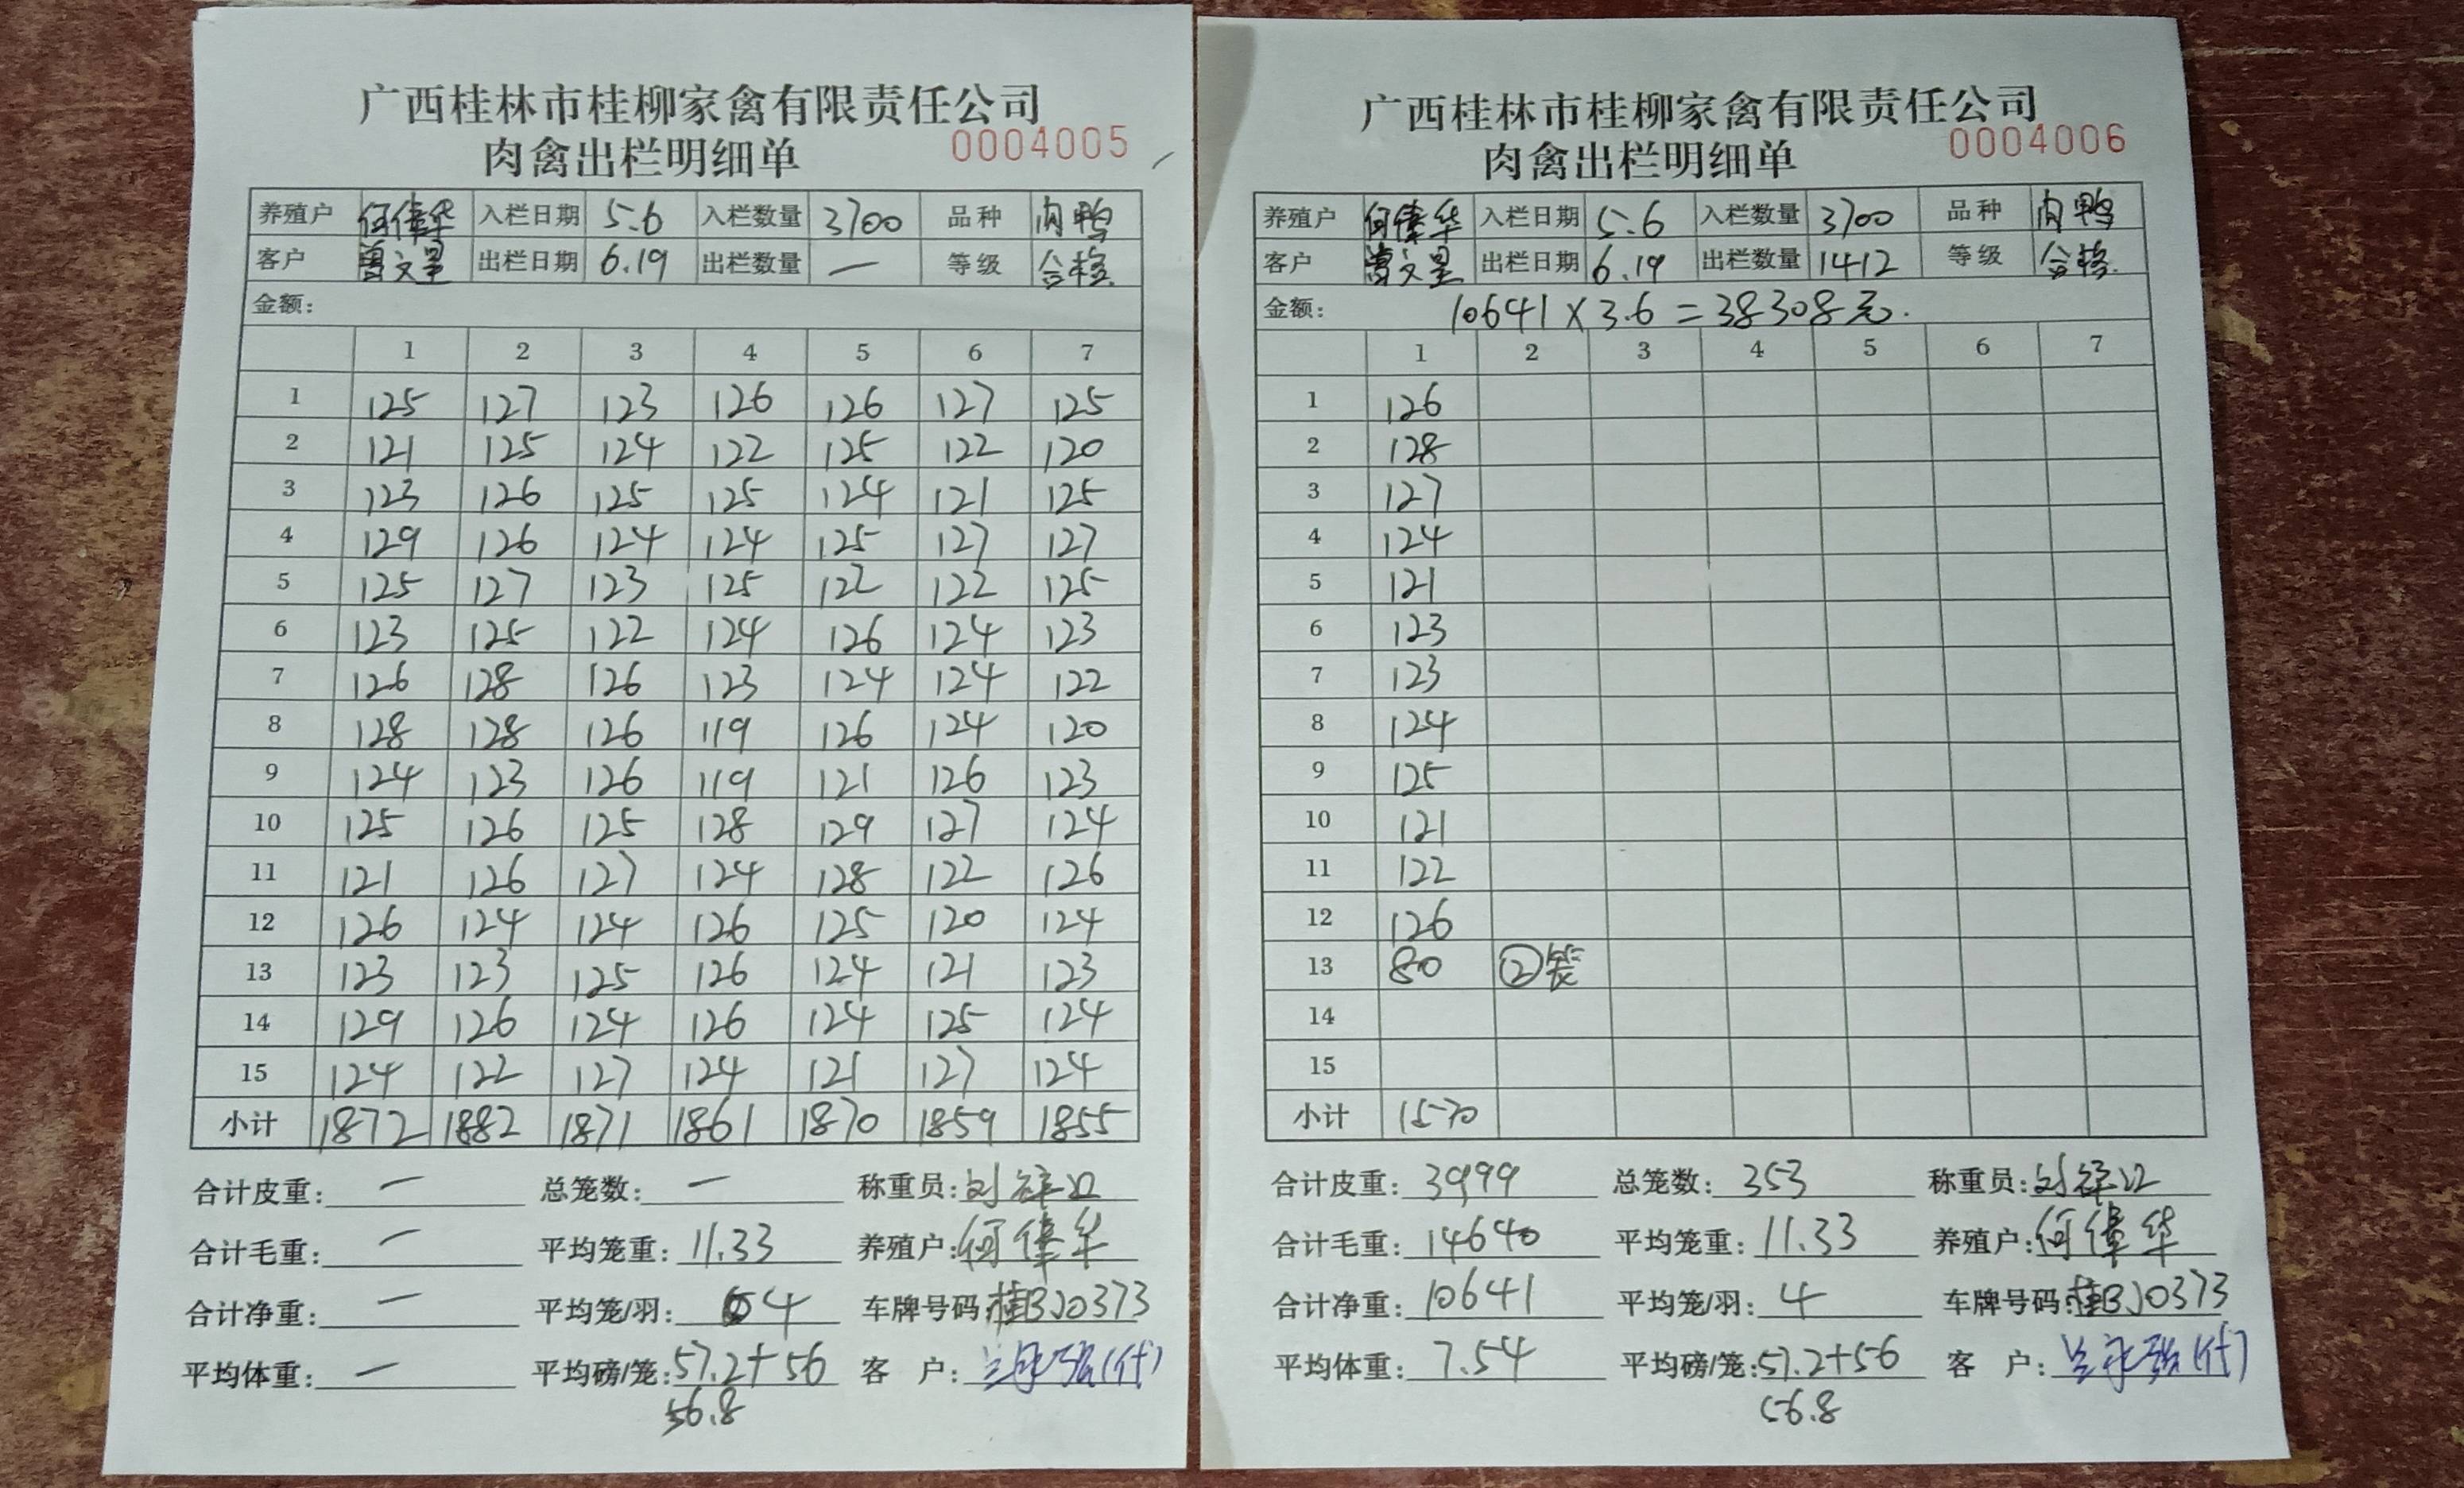 广西桂林市桂柳家禽有限责任公司
肉禽出栏明细单 0004005
养殖户 何伟华 入栏日期 5.6 入栏数量 3700 品种 肉鸭
客户 曾文星 出栏日期 6.19 出栏数量 — 等级 合格
金额:
1 2 3 4 5 6 7
1 125 127 123 126 126 127 125
2 121 125 124 122 125 122 120
3 123 126 125 125 124 121 125
4 129 126 124 124 125 127 127
5 125 127 123 125 122 122 125
6 123 125 122 124 126 124 123
7 126 128 126 123 124 124 122
8 128 128 126 119 126 124 120
9 124 123 126 119 121 126 123
10 125 126 125 128 129 127 124
11 121 126 127 124 128 122 126
12 126 124 124 126 125 120 124
13 123 123 125 126 124 121 123
14 129 126 124 126 124 125 124
15 124 122 127 124 121 127 124
小计 1872 1882 1871 1861 1870 1859 1855
合计皮重: — 总笼数: — 称重员:
合计毛重: — 平均笼重: 11.33 养殖户: 何伟华
合计净重: — 平均笼/羽: 4 车牌号码: 桂BJ0373
平均体重: — 平均磅/笼: 57.2+56 客 户: (付)
56.8
广西桂林市桂柳家禽有限责任公司
肉禽出栏明细单 0004006
养殖户 何伟华 入栏日期 5.6 入栏数量 3700 品种 肉鸭
客户 曾文星 出栏日期 6.19 出栏数量 1412 等级 合格.
金额: 10641×3.6=38308元.
1 2 3 4 5 6 7
1 126
2 128
3 127
4 124
5 121
6 123
7 123
8 124
9 125
10 121
11 122
12 126
13 80 ②笼
14
15
小计 1570
合计皮重: 3999 总笼数: 353 称重员:
合计毛重: 14640 平均笼重: 11.33 养殖户: 何伟华
合计净重: 10641 平均笼/羽: 4 车牌号码: 桂BJ0373
平均体重: 7.54 平均磅/笼: 57.2+56 客 户: (付)
56.8